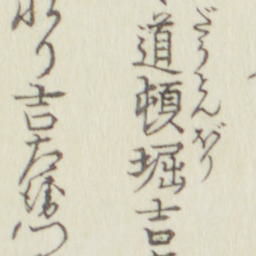 道頓堀吉
だうとんぼり
り吉左衛門